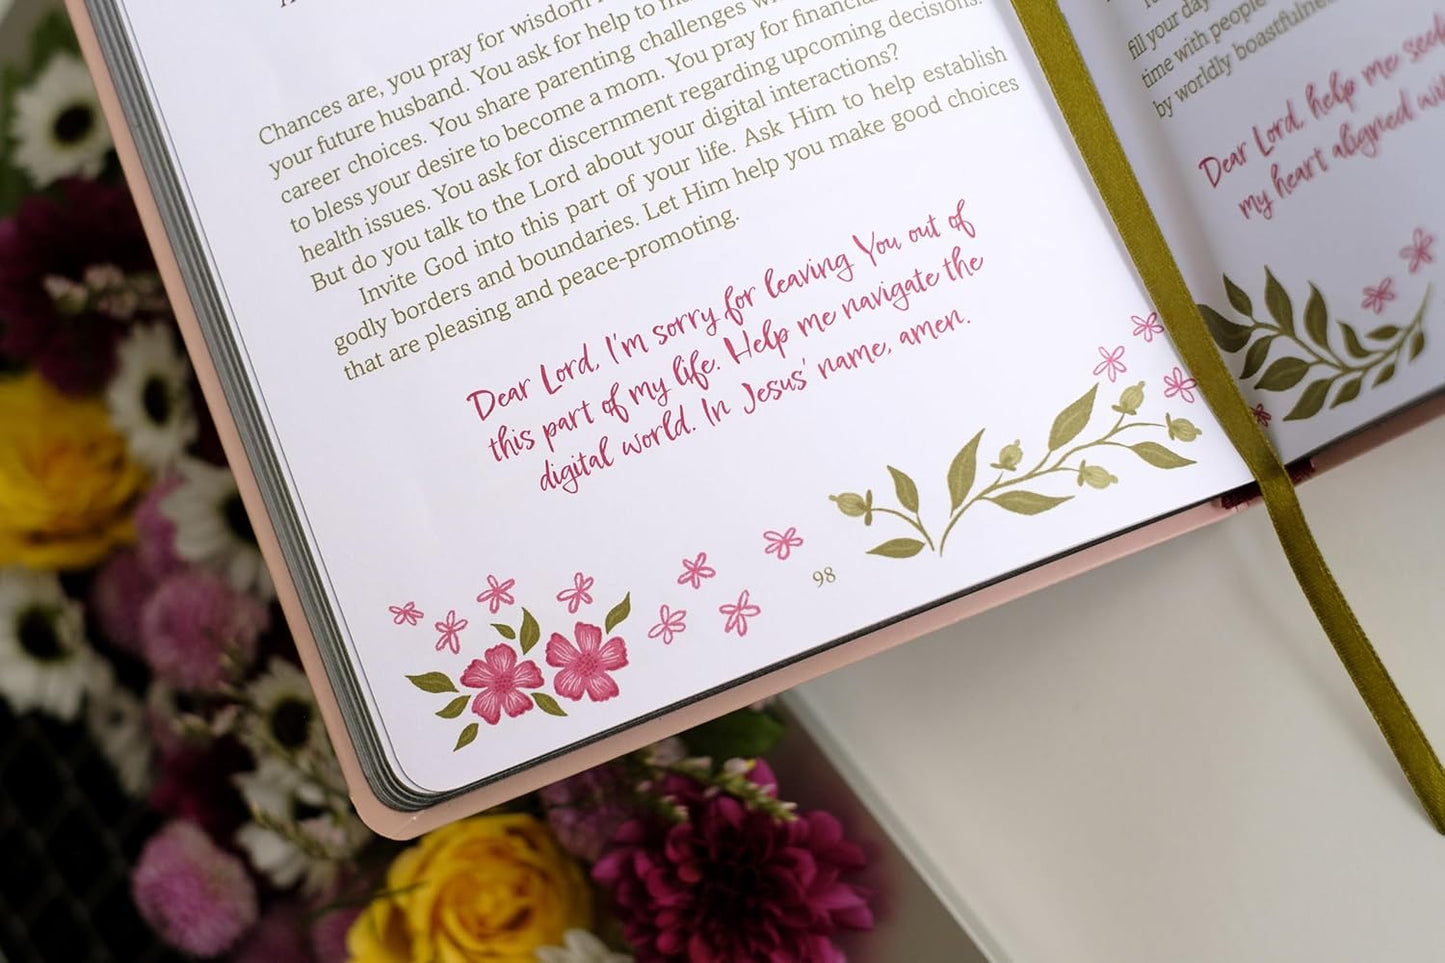 Chances are, you pray for wisdom
your future husband. You ask for help to
career choices. You share parenting challenges
to bless your desire to become a mom. You pray for financial
health issues. You ask for discernment regarding upcoming decisions.
But do you talk to the Lord about your digital interactions?
Invite God into this part of your life. Ask Him to help establish
godly borders and boundaries. Let Him help you make good choices
that are pleasing and peace-promoting.
Dear Lord, I'm sorry for leaving You out of
this part of my life. Help me navigate the
digital world. In Jesus' name, amen.
98
fill your day
time with people
by worldly boastfulne
Dear Lord, help me seek
my heart aligned wi